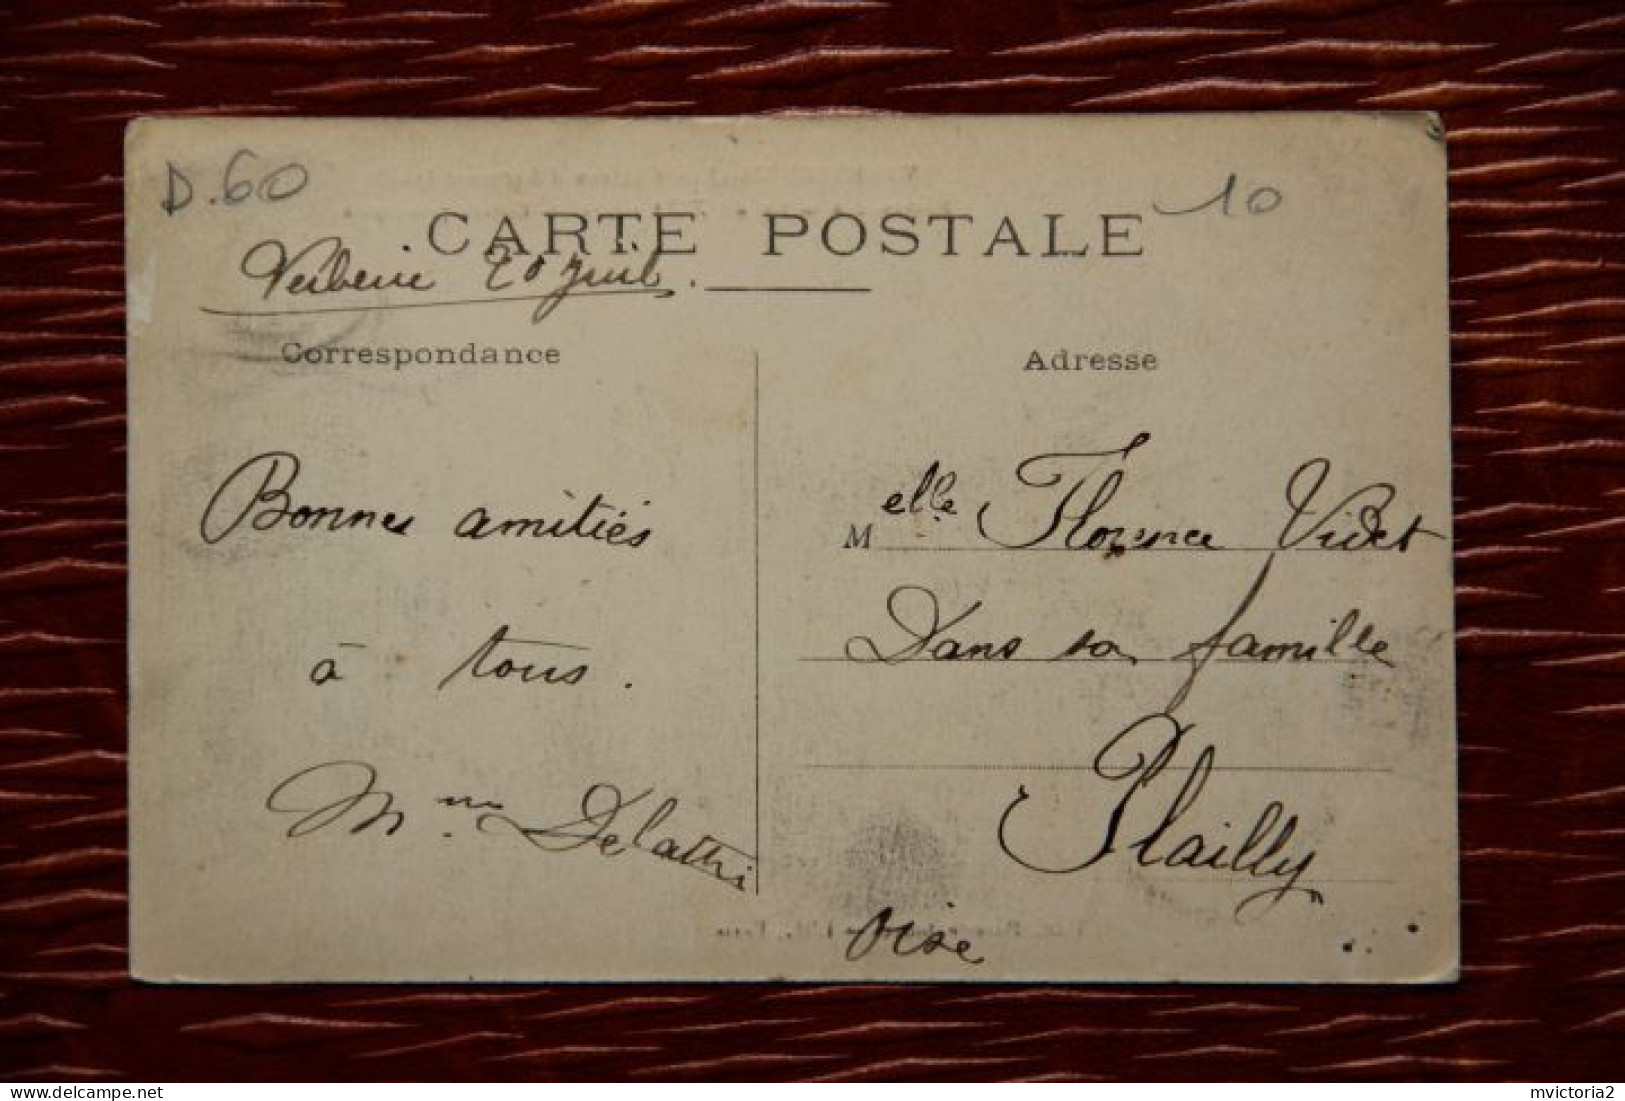 D.60
10
CARTE POSTALE
Verberie 20 Juil.
Correspondance
Adresse
Bonnes amitiés
à tous.
Mme Delattre
Melle Florence Videt
Dans sa famille
Plailly
Oise
mvictoria2